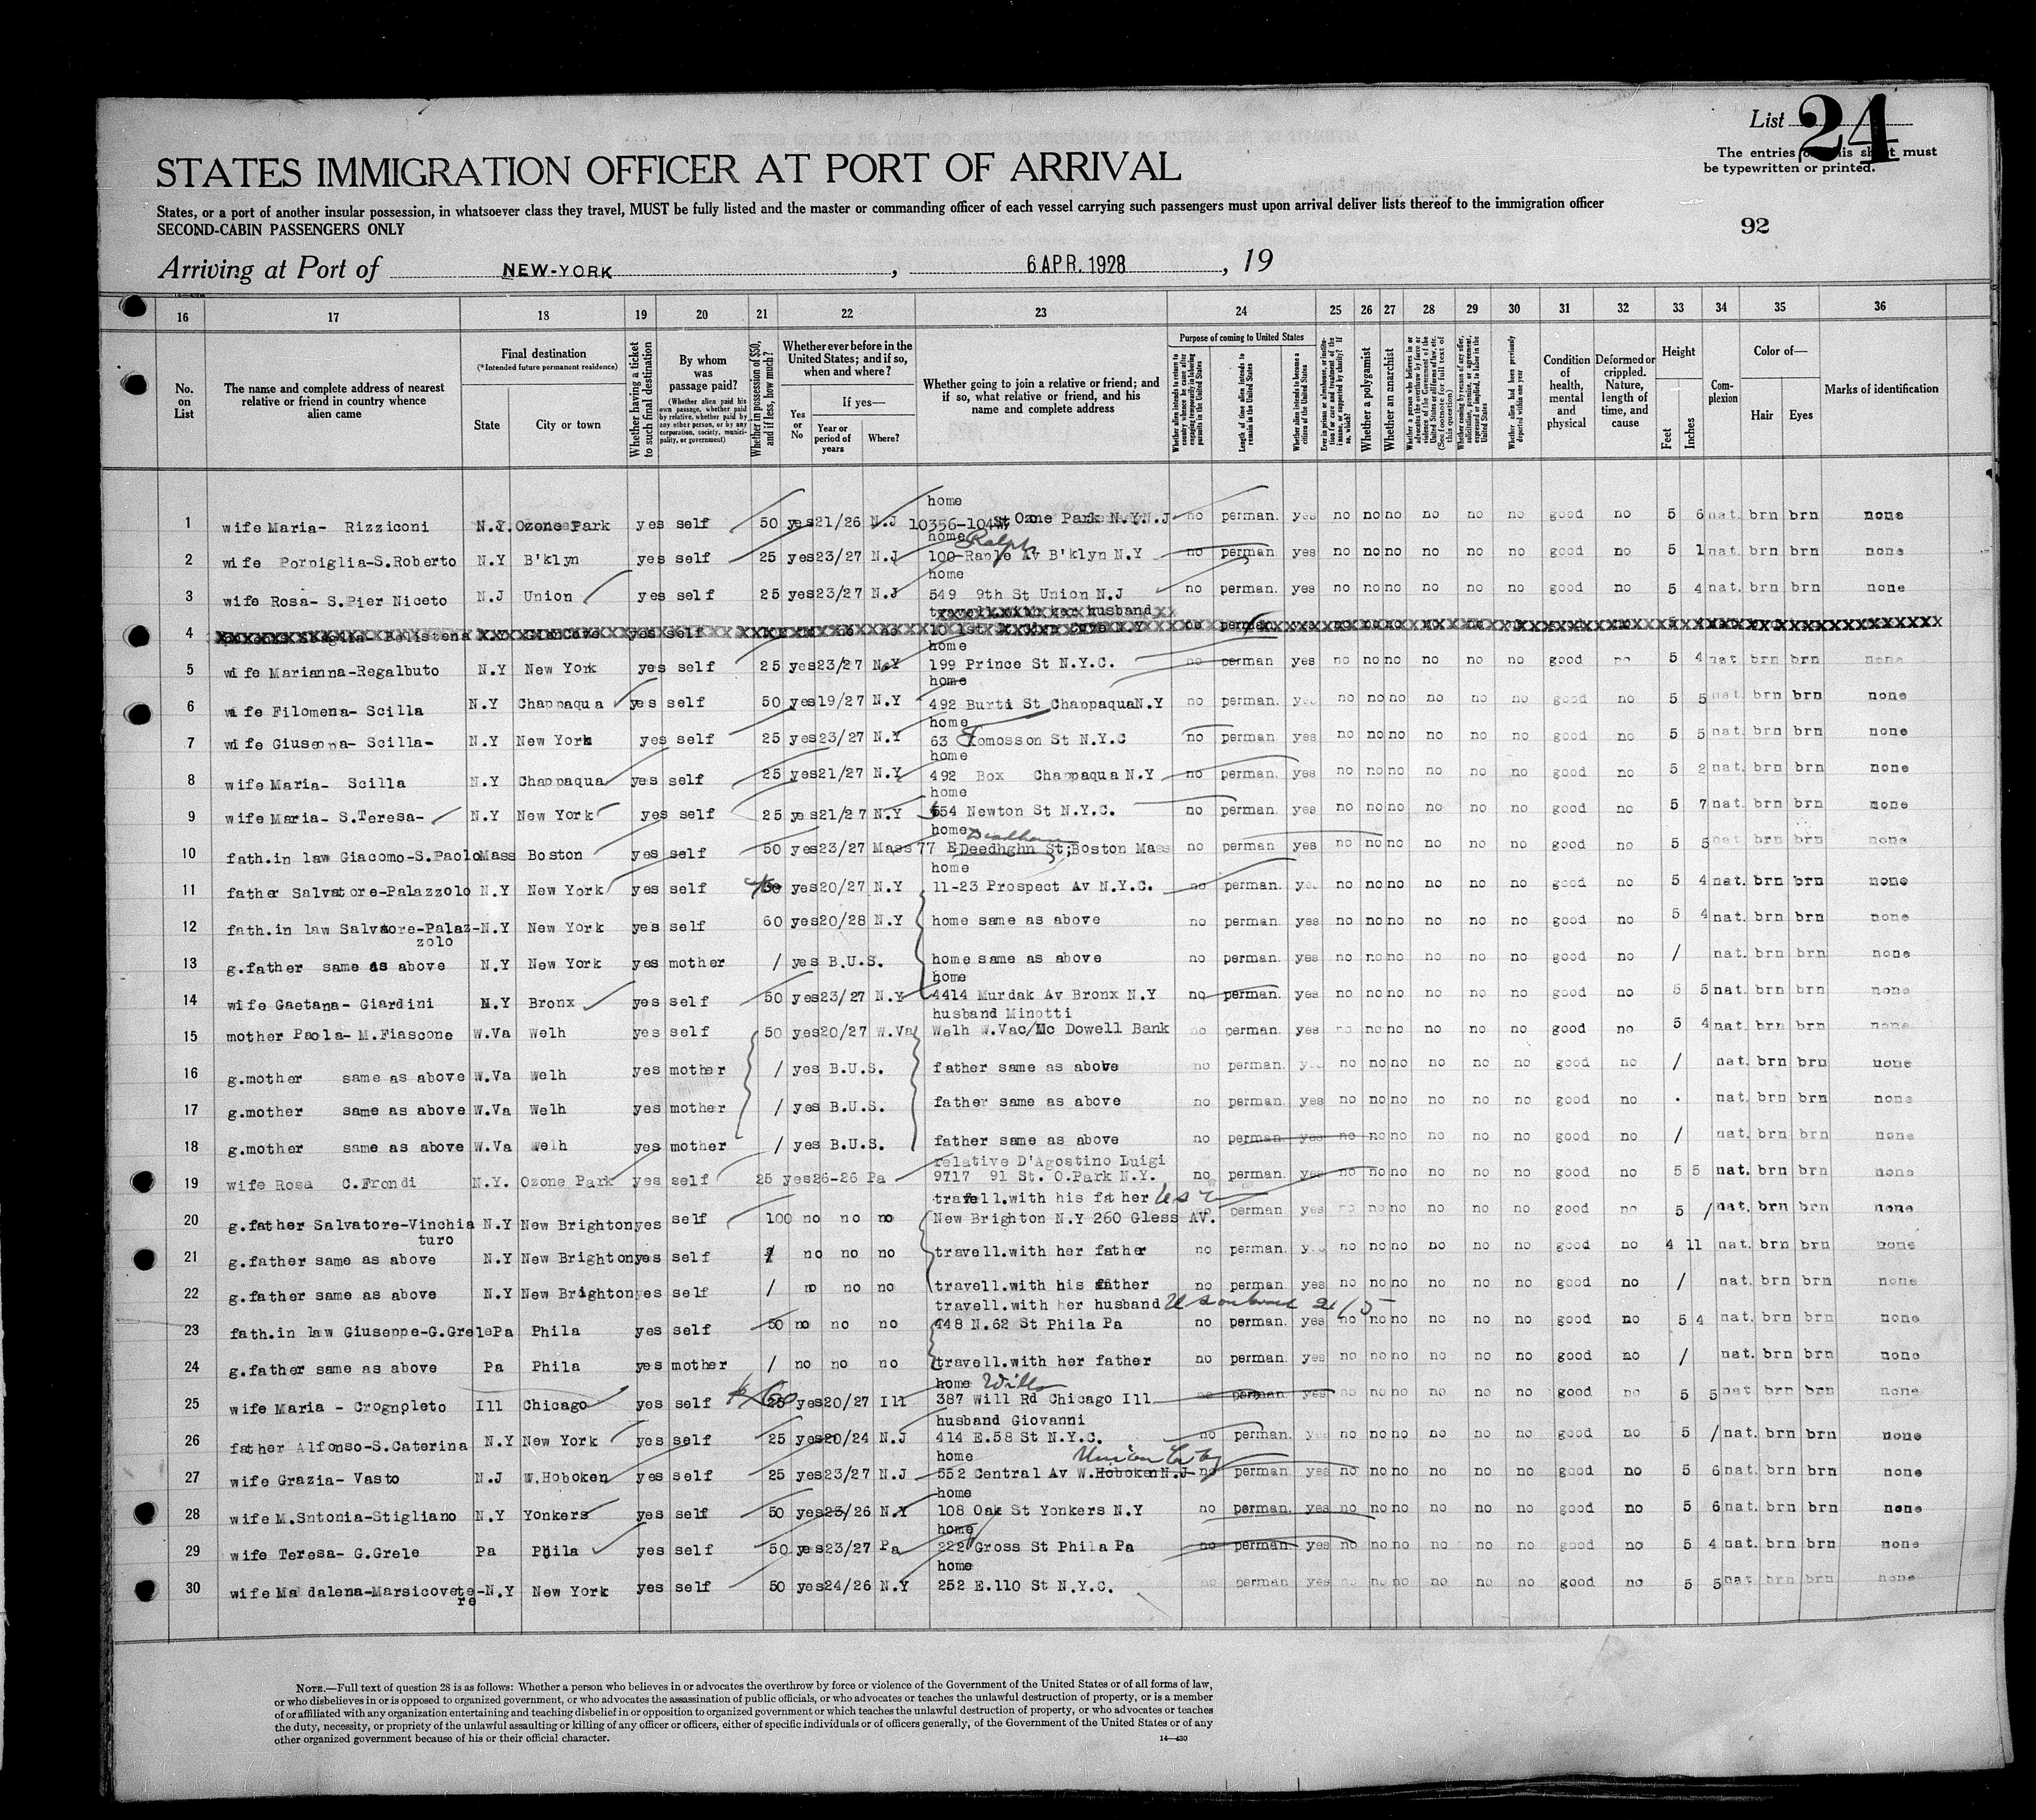 List 24
The entries on this sheet must
be typewritten or printed.
STATES IMMIGRATION OFFICER AT PORT OF ARRIVAL
States, or a port of another insular possession, in whatsoever class they travel, MUST be fully listed and the master or commanding officer of each vessel carrying such passengers must upon arrival deliver lists thereof to the immigration officer
SECOND-CABIN PASSENGERS ONLY
92
Arriving at Port of NEW-YORK, 6 APR. 1928, 19
16 17 18 19 20 21 22 23 24 25 26 27 28 29 30 31 32 33 34 35 36
No. on List
The name and complete address of nearest relative or friend in country whence alien came
Final destination
(*Intended future permanent residence)
State
City or town
Whether having a ticket to such final destination
By whom was passage paid?
(Whether alien paid his own passage, whether paid by relative, whether paid by any other person, or by any corporation, society, municipality, or government)
Whether in possession of $50, and if less, how much?
Whether ever before in the United States; and if so, when and where?
Yes or No
If yes—
Year or period of years
Where?
Whether going to join a relative or friend; and if so, what relative or friend, and his name and complete address
Purpose of coming to United States
Whether alien intends to return to country whence he came after engaging temporarily in laboring pursuits in the United States
Length of time alien intends to remain in the United States
Whether alien intends to become a citizen of the United States
Whether a polygamist
Whether an anarchist
Whether alien had been previously deported within one year
Condition of health, mental and physical
Deformed or crippled. Nature, length of time, and cause
Height
Feet
Inches
Complexion
Color of—
Hair
Eyes
Marks of identification
home
1 wife Maria- Rizziconi N.Y. Ozone Park yes self 50 yes 21/26 N.J 10356-104 St Ozne Park N.Y. N.J no perman. yes no no no no no no good no 5 6 nat. brn brn none
home Ralph
2 wife Porpiglia-S.Roberto N.Y B'klyn yes self 25 yes 23/27 N.J 100-Raple Av B'klyn N.Y no perman yes no no no no no no good no 5 1 nat. brn brn none
home
3 wife Rosa- S.Pier Niceto N.J Union yes self 25 yes 23/27 N.J 549 9th St Union N.J no perman. yes no no no no no no good no 5 4 nat. brn brn none
travell.with her husband
4 Polistena N.Y yes self no perman yes
home
5 wife Marianna-Regalbuto N.Y New York yes self 25 yes 23/27 N.Y 199 Prince St N.Y.C. no perman yes no no no no no no good no 5 4 nat brn brn none
home
6 wife Filomena- Scilla N.Y Chappaqua yes self 50 yes 19/27 N.Y 492 Burti St Chappaqua N.Y no perman. yes no no no no no no good no 5 5 nat. brn brn none
home
7 wife Giuseppa- Scilla- N.Y New York yes self 25 yes 23/27 N.Y 63 Tomosson St N.Y.C no perman. yes no no no no no no good no 5 5 nat. brn brn none
home
8 wife Maria- Scilla N.Y Chappaqua yes self 25 yes 21/27 N.Y 492 Box Chappaqua N.Y no perman. yes no no no no no no good no 5 2 nat. brn brn none
home
9 wife Maria- S.Teresa- N.Y New York yes self 25 yes 21/27 N.Y 654 Newton St N.Y.C. no perman. yes no no no no no no good no 5 7 nat. brn brn none
home
10 fath.in law Giacomo-S.Paolo Mass Boston yes self 50 yes 23/27 Mass 77 E Deedhghn St; Boston Mass no perman yes no no no no no no good no 5 5 nat. brn brn none
home
11 father Salvatore-Palazzolo N.Y New York yes self yes 20/27 N.Y 11-23 Prospect Av N.Y.C. no perman. yes no no no no no no good no 5 4 nat. brn brn none
12 fath.in law Salvatore-Palaz- N.Y New York yes self 60 yes 20/28 N.Y home same as above no perman. yes no no no no no no good no 5 4 nat. brn brn none
zolo
13 g.father same as above N.Y New York yes mother / yes B.U.S. home same as above no perman. yes no no no no no no good no / nat. brn brn none
home
14 wife Gaetana- Giardini N.Y Bronx yes self 50 yes 23/27 N.Y 4414 Murdak Av Bronx N.Y no perman. yes no no no no no no good no 5 5 nat. brn brn none
husband Minotti
15 mother Paola- M.Fiascone W.Va Welh yes self 50 yes 20/27 W.Va Welh W.Va c/Mc Dowell Bank no perman. yes no no no no no no good no 5 4 nat. brn brn none
16 g.mother same as above W.Va Welh yes mother / yes B.U.S. father same as above no perman. yes no no no no no no good no / nat. brn brn none
17 g.mother same as above W.Va Welh yes mother / yes B.U.S. father same as above no perman. yes no no no no no no good no . nat. brn brn none
18 g.mother same as above W.Va Welh yes mother / yes B.U.S. father same as above no perman yes no no no no no no good no / nat. brn brn none
relative D'Agostino Luigi
19 wife Rosa C.Frondi N.Y. Ozone Park yes self 25 yes 26-26 Pa 9717 91 St. O.Park N.Y. no perman. yes no no no no no no good no 5 5 nat. brn brn none
travell.with his father
20 g.father Salvatore-Vinchia N.Y New Brighton yes self 100 no no no New Brighton N.Y 260 Gless AV. no perman yes no no no no no no good no 5 / nat. brn brn none
turo
21 g.father same as above N.Y New Brighton yes self / no no no travell.with her father no perman. yes no no no no no no good no 4 11 nat. brn brn none
22 g.father same as above N.Y New Brighton yes self / no no no travell.with his father no perman. yes no no no no no no good no / nat. brn brn none
travell.with her husband
23 fath.in law Giuseppe-G.Grele Pa Phila yes self 50 no no no 448 N.62 St Phila Pa no perman. yes no no no no no no good no 5 4 nat. brn brn none
24 g.father same as above Pa Phila yes mother / no no no travell.with her father no perman. yes no no no no no no good no / nat. brn brn none
home Will
25 wife Maria - Crognpleto Ill Chicago yes self 25 yes 20/27 Ill 387 Will Rd Chicago Ill no perman yes no no no no no no good no 5 5 nat brn brn none
husband Giovanni
26 father Alfonso-S.Caterina N.Y New York yes self 25 yes 20/24 N.J 414 E.58 St N.Y.C. no perman. yes no no no no no no good no 5 / nat. brn brn none
home Union City
27 wife Grazia- Vasto N.J W.Hoboken yes self 25 yes 23/27 N.J 552 Central Av W.Hoboken N.J no perman yes no no no no no no good no 5 6 nat. brn brn none
home
28 wife M.Sntonia-Stigliano N.Y Yonkers yes self 50 yes 23/26 N.Y 108 Oak St Yonkers N.Y no perman. yes no no no no no no good no 5 6 nat. brn brn none
home
29 wife Teresa- G.Grele Pa Phila yes self 50 yes 23/27 Pa 222 Gross St Phila Pa no perman. yes no no no no no no good no 5 4 nat. brn brn none
home
30 wife Ma dalena-Marsicovete- N.Y New York yes self 50 yes 24/26 N.Y 252 E.110 St N.Y.C. no perman yes no no no no no no good no 5 5 nat. brn brn none
re
NOTE.—Full text of question 28 is as follows: Whether a person who believes in or advocates the overthrow by force or violence of the Government of the United States or of all forms of law,
or who disbelieves in or is opposed to organized government, or who advocates the assassination of public officials, or who advocates or teaches the unlawful destruction of property, or is a member
of or affiliated with any organization entertaining and teaching disbelief in or opposition to organized government or which teaches the unlawful destruction of property, or who advocates or teaches
the duty, necessity, or propriety of the unlawful assaulting or killing of any officer or officers, either of specific individuals or of officers generally, of the Government of the United States or of any
other organized government because of his or their official character.
14—430